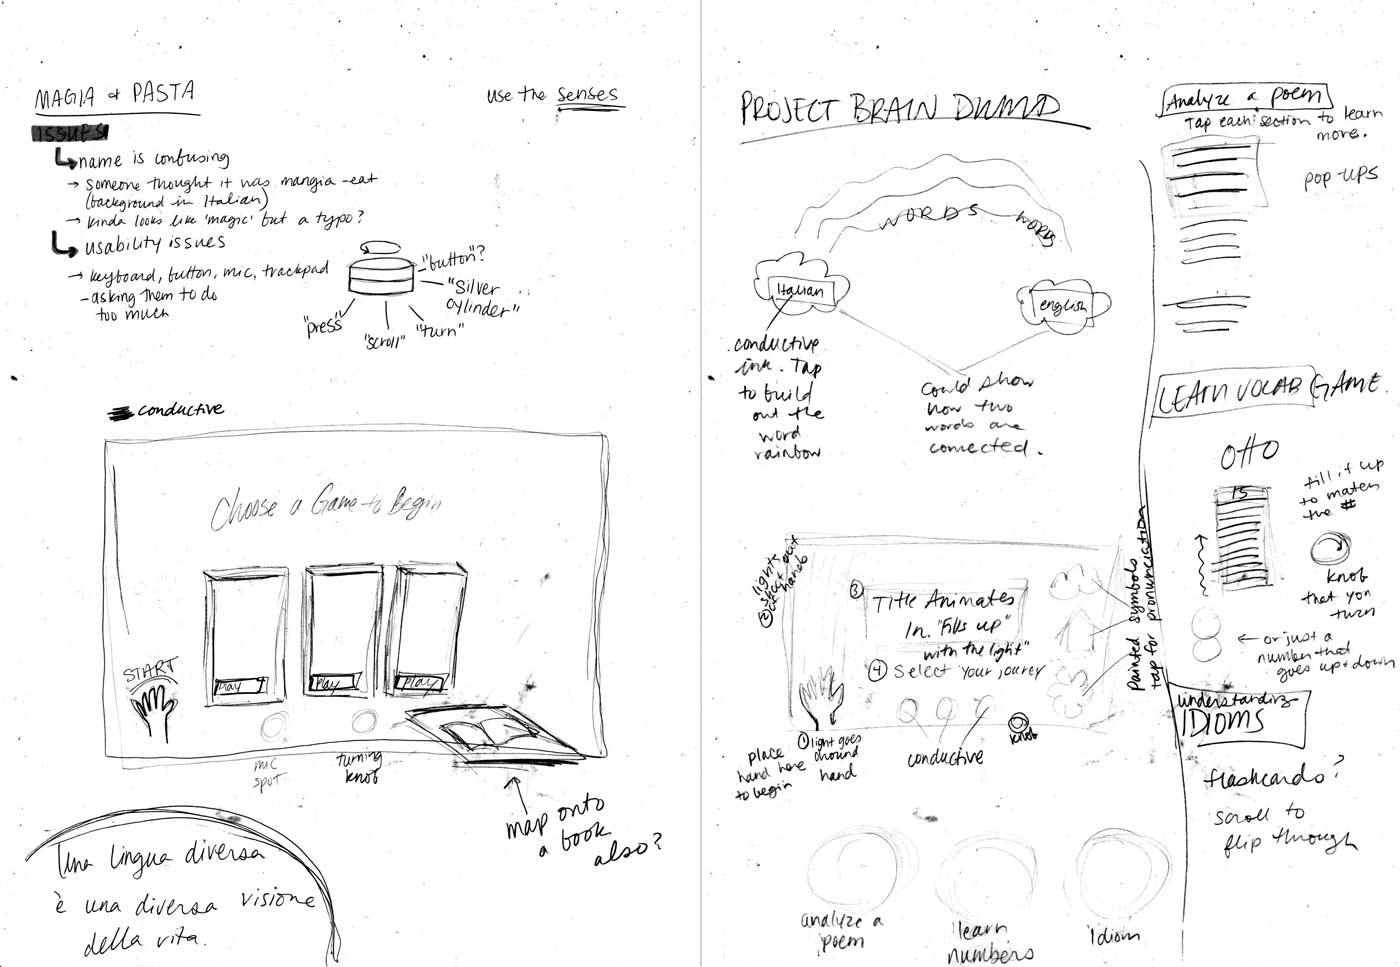 MAGIA & PASTA
use the senses
ISSUES
name is confusing
→ someone thought it was mangia -eat
(background in Italian)
→ kinda looks like 'magic' but a typo?
usability issues
→ keyboard, button, mic, trackpad
- asking them to do
too much
"button"?
"silver
cylinder"
"turn"
"scroll"
"press"
conductive
Choose a Game to Begin
Play
Play
Play
START
mic
spot
turning
knob
map onto
a book
also?
Una lingua diversa
è una diversa visione
della vita.
PROJECT BRAIN DUMP
WORDS
WORDS
Italian
english
conductive
ink. Tap
to build
out the
word
rainbow
Could show
how two
words are
connected.
② lights
shoot out
of hands
③
Title Animates
In. "Fills up"
with the light"
④ Select your journey
place
hand here
to begin
① light goes
around
hand
conductive
knob
Painted symbols
tap for pronunciation
analyze a
poem
learn
numbers
Idiom
Analyze a poem
Tap each section to learn
more.
POP-UPS
LEARN VOCAB GAME.
OTTO
15
fill it up
to match
the #
knob
that you
turn
← or just a
number that
goes up + down
understanding
IDIOMS
flashcards?
scroll to
flip through